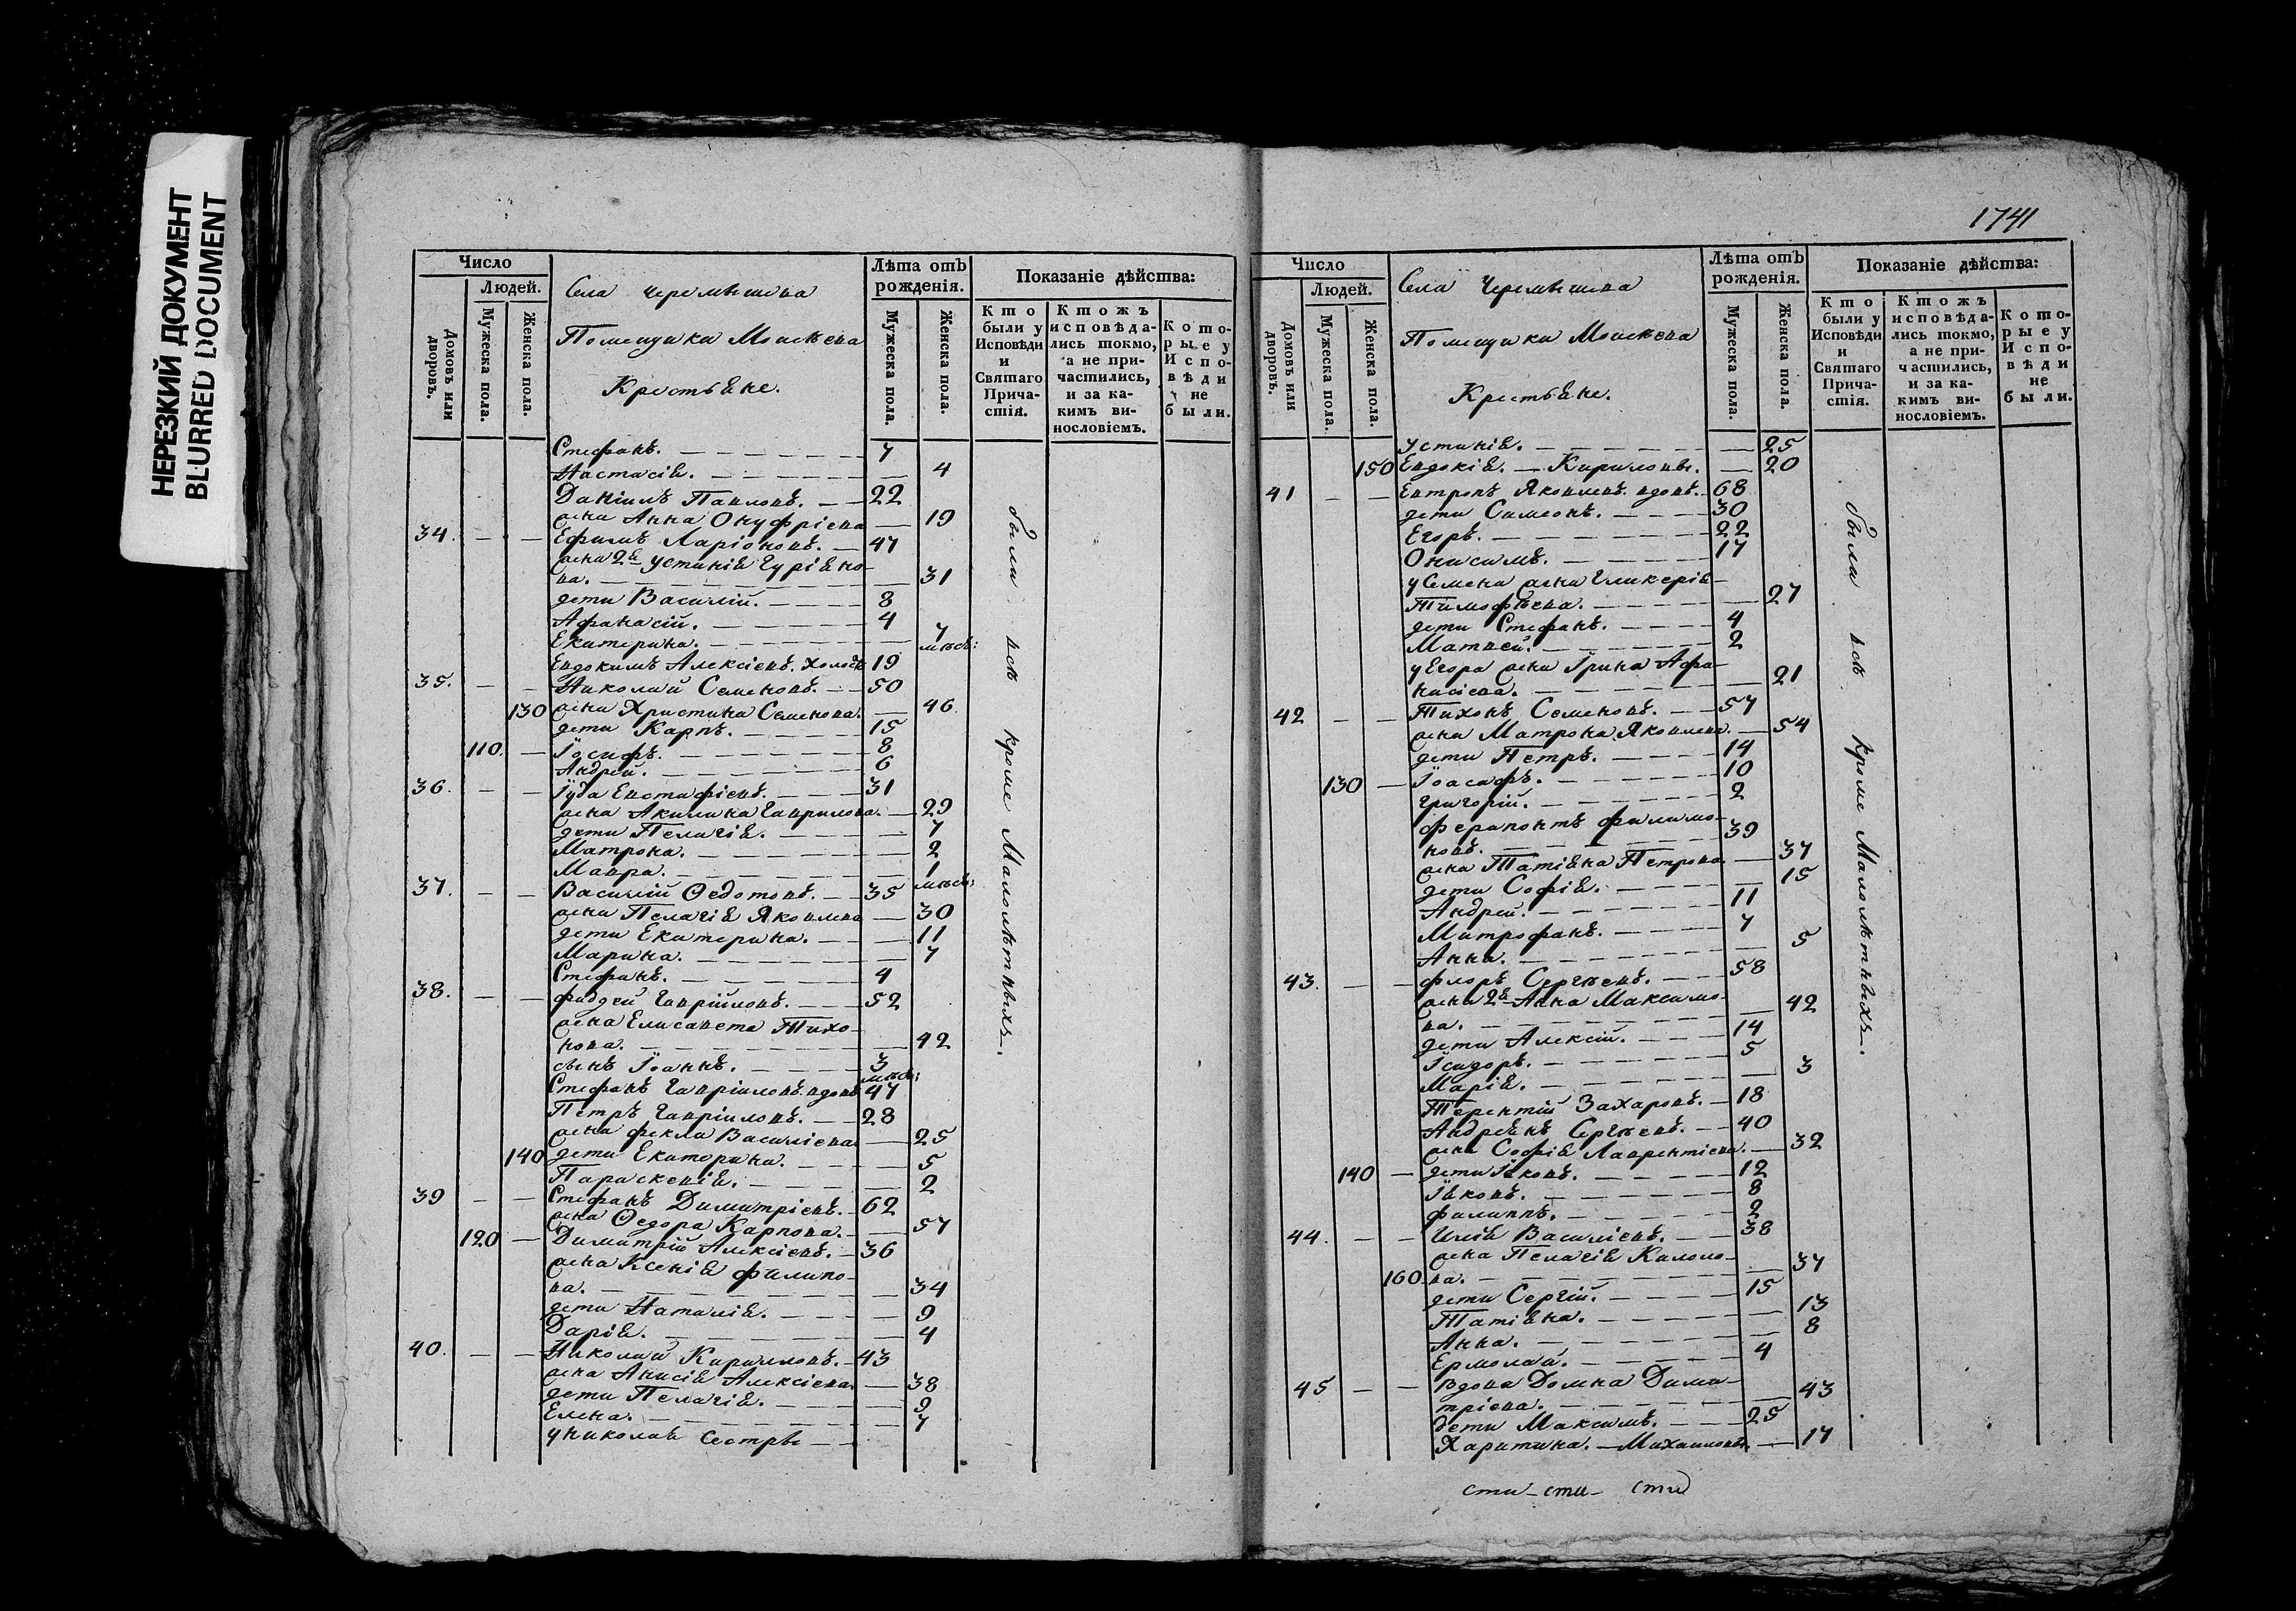 НЕРЕЗКИЙ ДОКУМЕНТ
BLURRED DOCUMENT
Число
Людей.
Домовъ или дворовъ.
Мужеска пола.
Женска пола.
Села Черемышева
Помещика Моисеева
Крестьяне.
Лѣта отъ рожденія.
Мужеска пола.
Женска пола.
Показаніе дѣйства:
Кто были у Исповѣди и Святаго Причастія.
Ктожъ исповѣдались токмо, а не причастились, и за какимъ винословіемъ.
Которые у Исповѣди не были.
Стефанъ. 7
Настасія. 4
Даніилъ Павловъ. 22
жена Анна Онуфріева 19
34. Ефимъ Ларіоновъ. 47
жена 2я Устинія Гуріяно-
ва. 31
дети Василій. 8
Афанасій. 4
Екатерина. 7 мѣсц:
Евдокимъ Алексіевъ. холостъ 19
35. Николай Семеновъ. 50
130 жена Христина Семенова. 46
дети Карпъ. 15
110. Іосифъ. 8
Андрей. 6
36. Іуда Евстафіевъ. 31
жена Акилина Гаврилова. 29
дети Пелагія. 7
Матрона. 2
Мавра. 1 мѣсц:
37. Василій Ѳедотовъ. 35
жена Пелагія Яковлева 30
дети Екатерина. 11
Марина. 7
Стефанъ. 4
38. Фаддей Гавріиловъ. 52
жена Елисавета Тихо-
нова. 42
сынъ Іоаннъ. 3 мѣсц:
Стефанъ Гавріиловъ. вдовъ 47
Петръ Гавріиловъ. 28
жена Фекла Василіева 25
140 дети Екатерина. 5
Параскевія. 2
39 Стефанъ Димитріевъ. 62
жена Ѳедора Карпова. 57
120 Димитрій Алексіевъ. 36
жена Ксенія Филипо-
ва. 34
дети Наталія. 9
Дарія. 4
40. Николай Кириловъ. 43
жена Анисія Алексіева. 38
дети Пелагія. 9
Елена. 7
у Николая сестры
были всѣ кроме малолѣтныхъ.
1741
Число
Людей.
Домовъ или дворовъ.
Мужеска пола.
Женска пола.
Села Черемышева
Помещика Моисеева
Крестьяне.
Лѣта отъ рожденія.
Мужеска пола.
Женска пола.
Показаніе дѣйства:
Кто были у Исповѣди и Святаго Причастія.
Ктожъ исповѣдались токмо, а не причастились, и за какимъ винословіемъ.
Которые у Исповѣди не были.
Устинія. 25
150 Евдокія. Кириловы. 20
41 Евтропъ Яковлевъ. вдовъ. 68
дети Симеонъ. 30
Егоръ. 22
Онисимъ. 17
у Семена жена Гликерія
Тимофѣева. 27
дети Стефанъ. 4
Матвей. 2
у Егора жена Ірина Афа-
насіева. 21
42 Тихонъ Семеновъ. 57
жена Матрона Яковлева. 54
дети Петръ. 14
130 Іоасафъ. 10
Григорій. 2
Ферапонтъ Филимо-
новъ. 39
жена Татіяна Петрова 37
дети Софія. 15
Андрей. 11
Митрофанъ. 7
Анна. 5
43. Флоръ Сергѣевъ. 58
жена 2я Анна Максимо-
ва. 42
дети Алексій. 14
Ісидоръ. 5
Марія. 3
Терентій Захаровъ. 18
Андреянъ Сергѣевъ. 40
жена Софія Лаврентіева. 32
140 дети Іяковъ. 12
Іяковъ. 8
Филиппъ. 2
44. Илія Василіевъ. 38
жена Пелагія
160 ва. 37
дети Сергій. 15
Татіяна. 13
Анна. 8
Ермолай. 4
45 вдова Домна Дими-
тріева. 43
дети Максимъ. 25
Харитина. Михаиловы. 17
были всѣ кроме малолѣтныхъ.